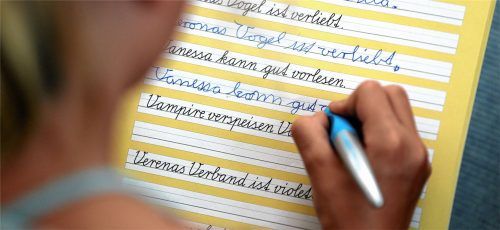 Vogel ist verliebt.
Veronas Vogel ist verliebt.
Vanessa kann gut vorlesen.
Vanessa kann gut
Vampire verspeisen
Verenas Verband ist violett